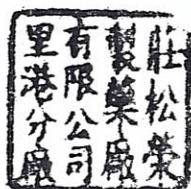 莊松榮
製藥廠
有限公司
里港分廠